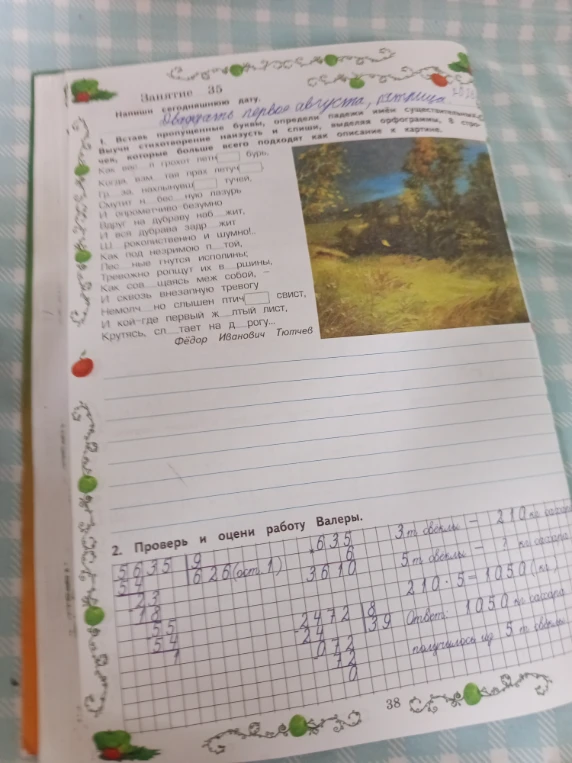 Занятие 35
Напиши сегодняшнюю дату.
Двадцать первое августа, пятница.
1. Вставь пропущенные буквы, определи падежи имён существительных.
Выучи стихотворение наизусть и спиши, выделяя орфограммы, 8 стро-
чек, которые больше всего подходят как описание к картине.
Как вес__л грохот летн бурь,
Когда, взм__тая прах летуч ,
Гр__за, нахлынувш тучей,
Смутит н__бес__ную лазурь
И опрометчиво безумно
Вдруг на дубраву наб__жит,
И вся дубрава задр__жит
Ш__роколиственно и шумно!..
Как под незримою п__той,
Лес__ные гнутся исполины;
Тревожно ропщут их в__ршины,
Как сов__щаясь меж собой, –
И сквозь внезапную тревогу
Немолч__но слышен птич свист,
И кой-где первый ж__лтый лист,
Крутясь, сл__тает на д__рогу...
Фёдор Иванович Тютчев
2. Проверь и оцени работу Валеры.
5635 9 635 3 т свеклы – 210 кг сахара
54 626 (ост. 1) 6 5 т свеклы – ? кг сахара
23 3610 210 · 5 = 1050 (кг)
18 2472 8 Ответ: 1050 кг сахара
55 24 39 получилось из 5 т свеклы.
54 072
1 72
0
38